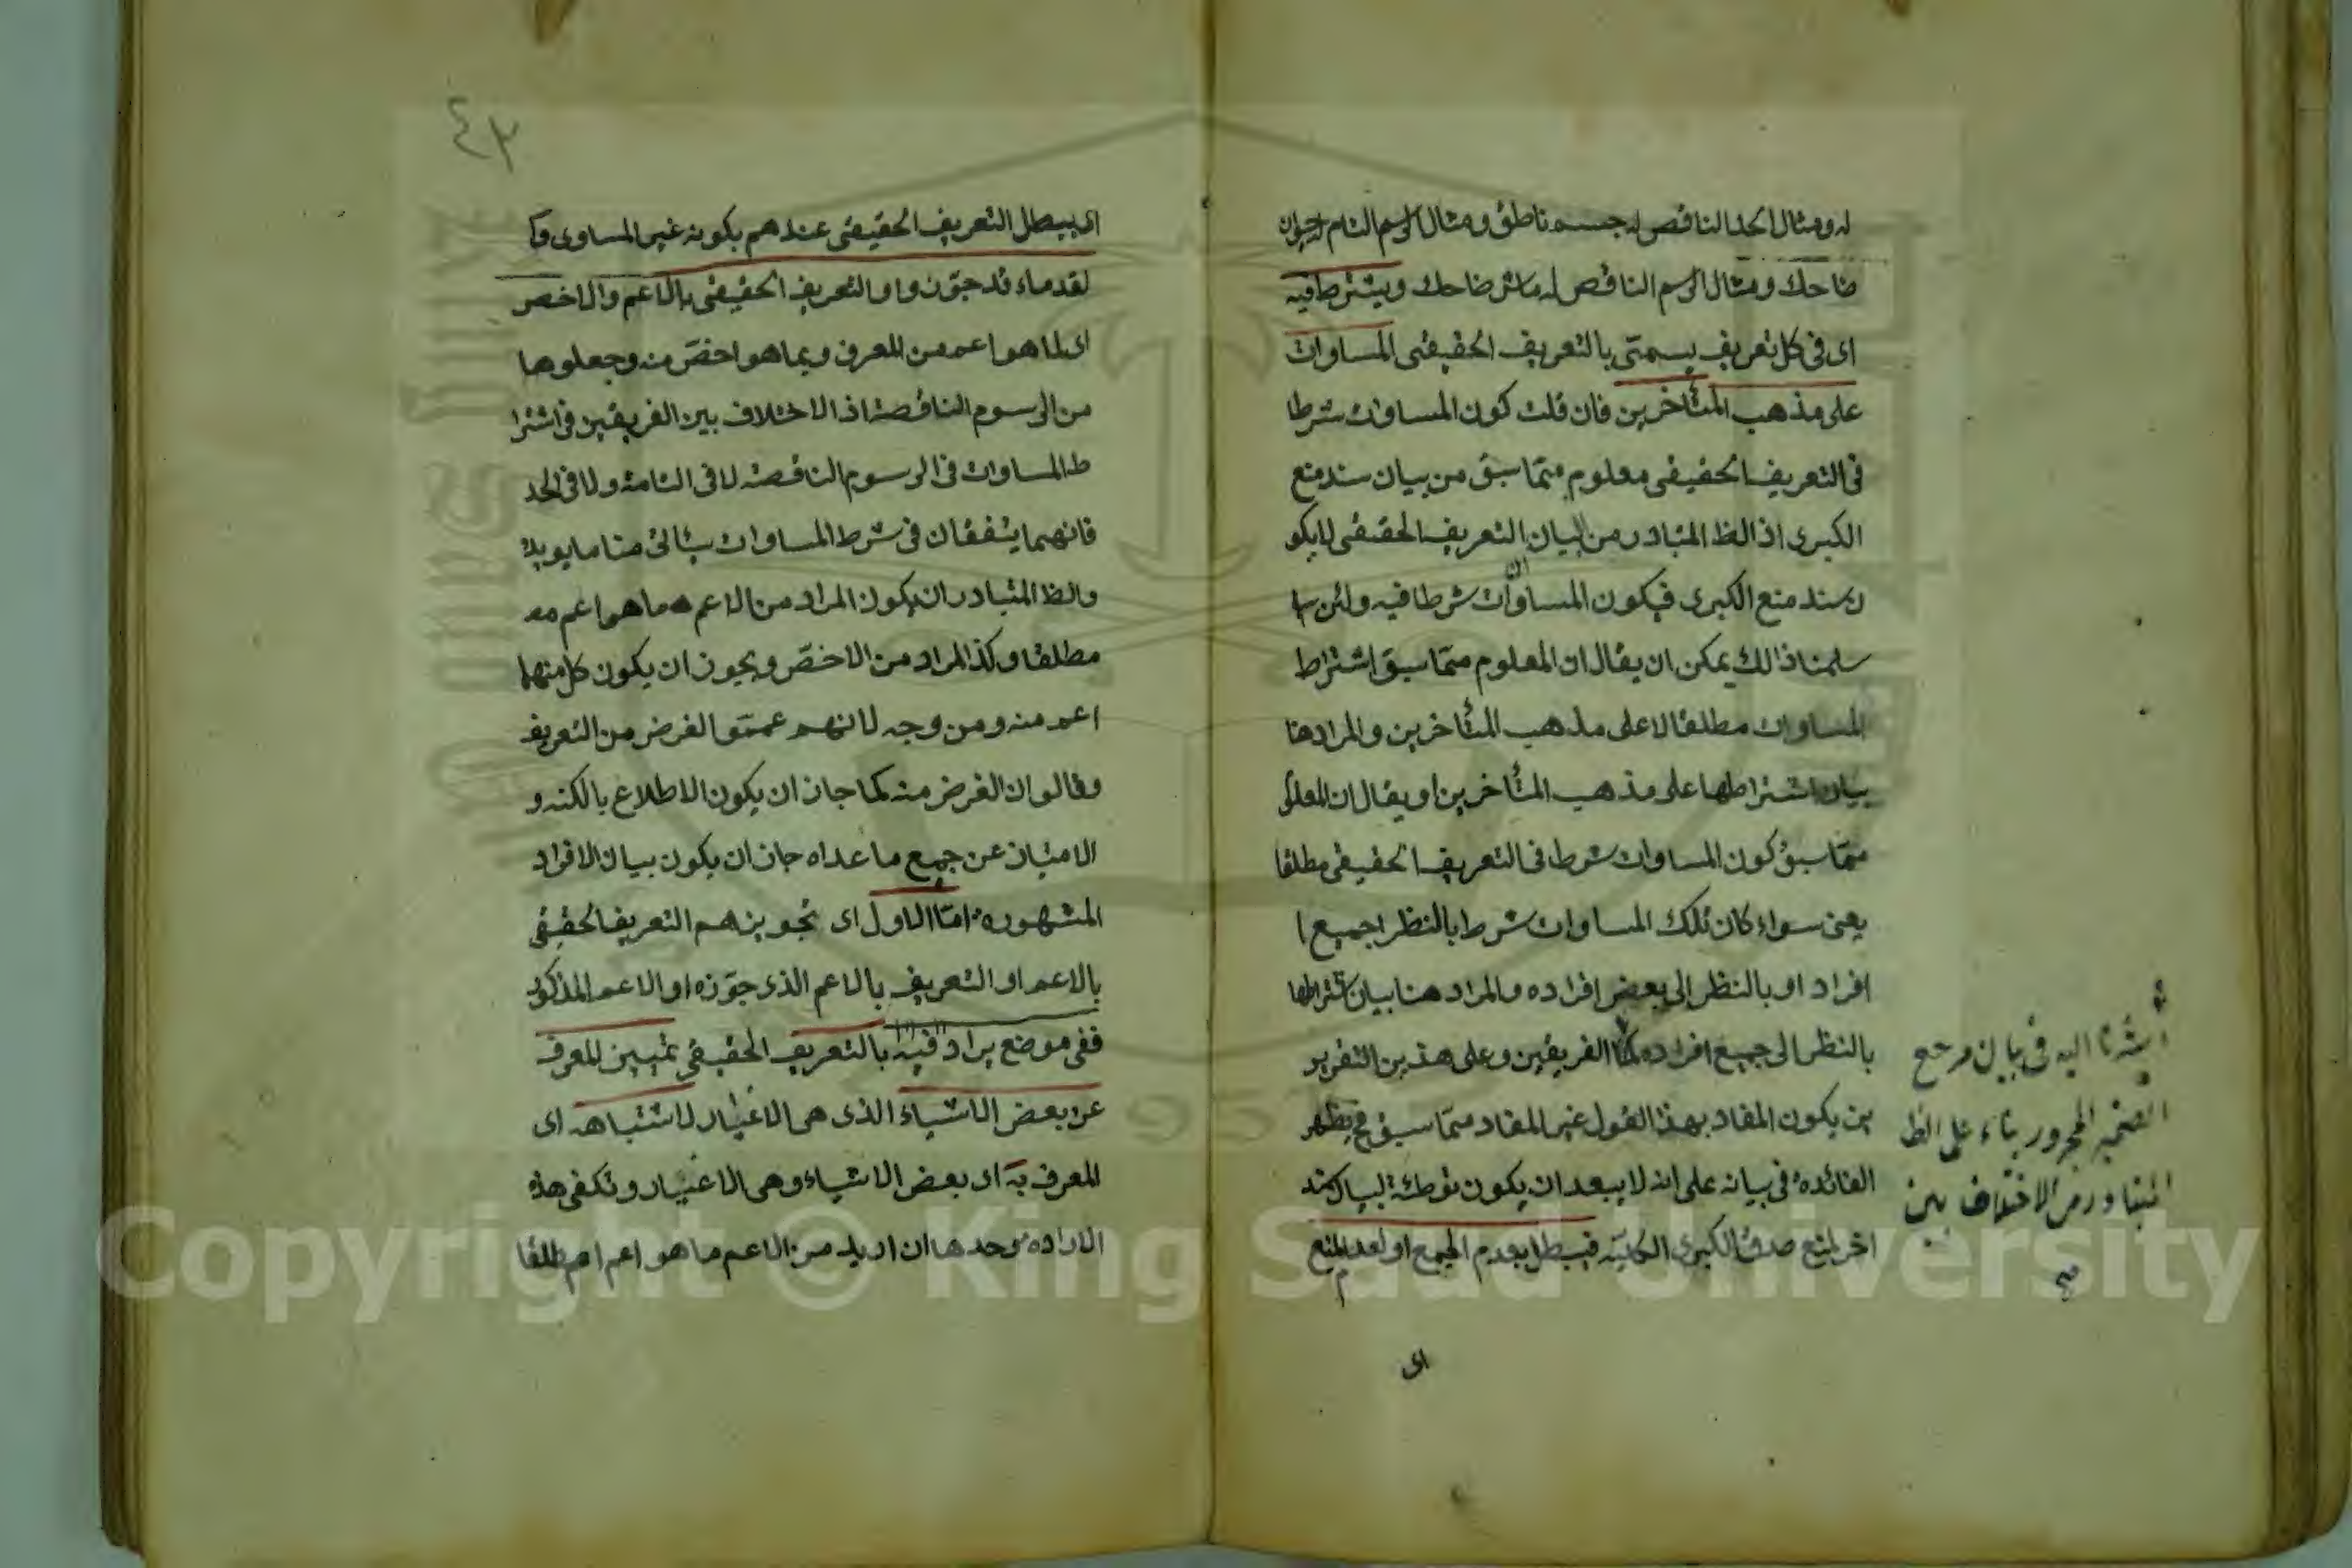 له ومثال الحد الناقص له جسم ناطق ومثال الرسم التام له حيوان
ضاحك ومثال الرسم الناقص له ماش ضاحك ويشترط فيه
اى فى كل تعريف يسمى بالتعريف الحقيقى المساوات
على مذهب المتأخرين فان قلت كون المساوات شرطا
فى التعريف الحقيقى معلوم مما سبق من بيان سند منع
الكبرى اذ الظ المتبادر من البيان ان التعريف الحقيقى لا يكو
ن سند منع الكبرى فيكون المساوات شرطا فيه ولئن
سلمنا ذالك يمكن ان يقال ان المعلوم مما سبق اشتراط
المساوات مطلقا لا على مذهب المتأخرين والمراد هنا
بيان اشتراطها على مذهب المتأخرين او يقال ان المعلوم
مما سبق كون المساوات شرط فى التعريف الحقيقى مطلقا
يعنى سواء كان تلك المساوات شرط بالنظر جميع ا
افراد او بالنظر الى بعض افراده والمراد هنا بيان اشتراطها
بالنظر الى جميع افراده الفريقين وعلى هذين التقرير
ين يكون المفاد بهذا القول غير المفاد مما سبق فح يظهر
الفائدة فى بيانه على انه لا يبعد ان يكون توطئة لبيان سند
اخر لمنع صدق الكبرى الكلية فيبطل بعدم الجمع او لعدم المنع
اى
أشرنا اليه فى بيان مرجع
الضمير المجرور بناء على الظ
المتبادر من الاختلاف بين
٤٣
اى يبطل التعريف الحقيقى عندهم بكونه غير المساوى و
لقدماء قد جوزوا والتعريف الحقيقى بالاعم والاخص
اى بما هو اعم من المعرف وبما هو اخص منه وجعلوها
من الرسوم الناقصة اذ الاختلاف بين الفريقين فى اشترا
ط المساوات فى الرسوم الناقصة لا فى التامة ولا فى الحد
فانهما يتفقان فى شرط المساوات سيأتى منا ما يويده
والظ المتبادر ان يكون المراد من الاعم ما هو اعم منه
مطلقا وكذا المراد من الاخص ويجوز ان يكون كل منهما
اعم منه ومن وجه لانهم عمموا الغرض من التعريف
وقالو ان الغرض منه كما جاز ان يكون الاطلاع بالكنه و
الامتياز عن جميع ما عداه جاز ان يكون بيان الافراد
المشهورة اما الاول اى تجويزهم التعريف الحقيقى
بالاعم او التعريف بالاعم الذى جوزه او الاعم المذكور
ففى موضع يراد فيه بالتعريف الحقيقى تمييز المعرف
عن بعض الاشياء الذى هى الاغيار لاشتباهه اى
المعرف به اى بعض الاشياء وهى الاغيار وتكفى هذه
الارادة وحدها ان اريد من الاعم ما هو اعم مطلقا
Copyright © King Saud University